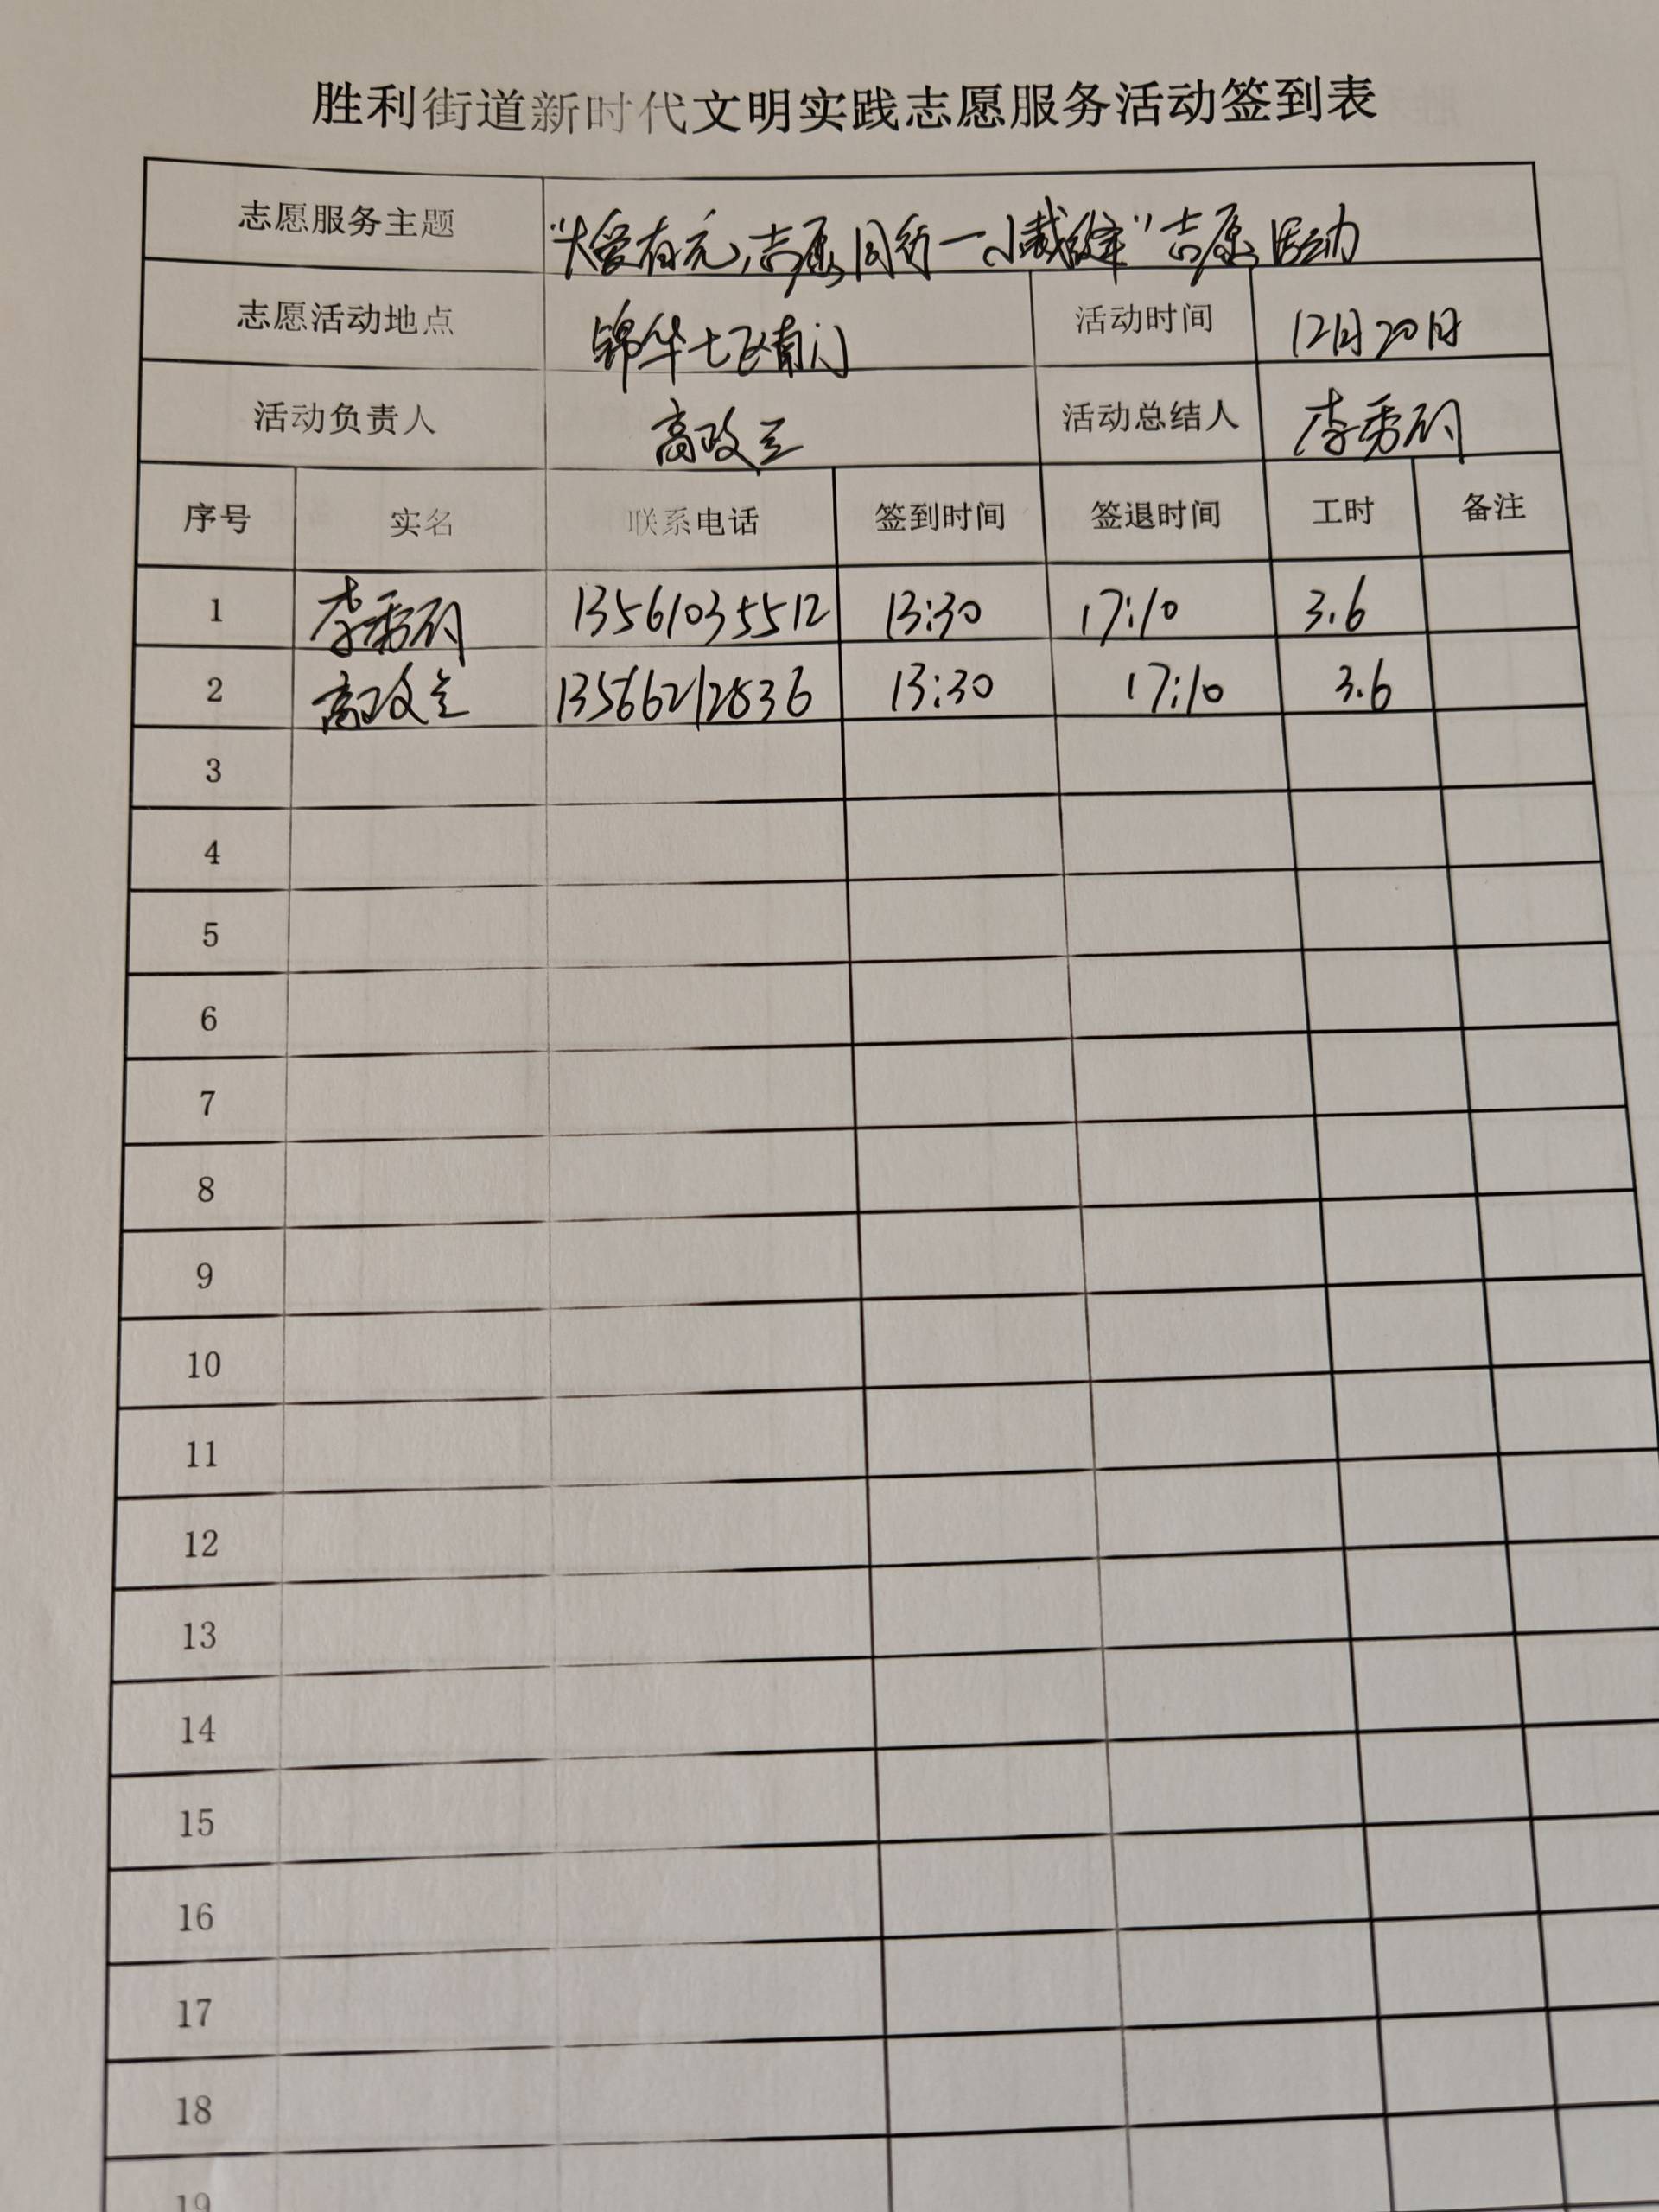 胜利街道新时代文明实践志愿服务活动签到表
志愿服务主题 "大爱有元,志愿同行一小裁缝"志愿活动
志愿活动地点 锦华七区南门 活动时间 12月20日
活动负责人 高政兰 活动总结人 李秀
序号 实名 联系电话 签到时间 签退时间 工时 备注
1 李秀 13561035512 13:30 17:10 3.6
2 高政兰 13566212836 13:30 17:10 3.6
3
4
5
6
7
8
9
10
11
12
13
14
15
16
17
18
19